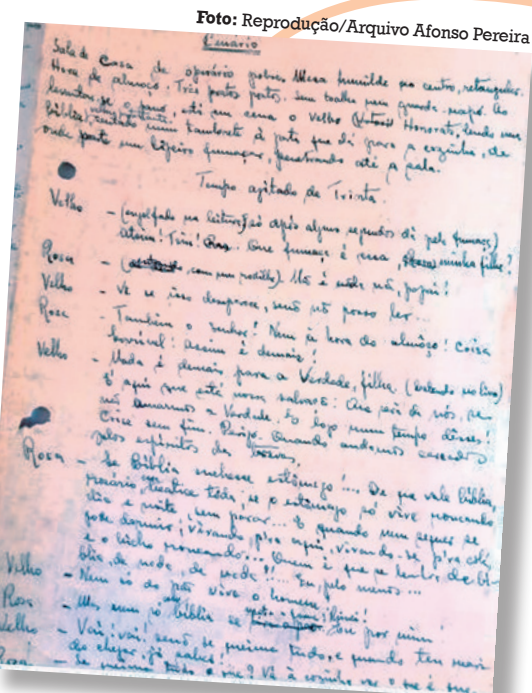 Foto: Reprodução/Arquivo Afonso Pereira
Cenário
Sala de Casa de operário pobre. Mesa humilde no centro, retangular.
Hora de almoço. Três portas. sem toalha nem guarda-napo. Ao
levantar-se o pano, está em cena o Velho Honorato, lendo uma
Bíblia, sentado num tamborete à porta que dá para a cozinha, de
onde parte um ligeiro fumaçar, penetrando até a sala.
Tempo agitado de Trinta.
Velho - (engolfado na leitura, só após alguns segundos dá pela fumaça)
Que fumaça é essa, minha filha?
Rosa - (com um rodilho). Não é nada não, papai!
Velho - Vê se isso desaparece, senão não posso ler...
Rosa - Também o senhor! Nem à hora do almoço! Coisa
horrível! Assim é demais!
Velho - Nada é demais para a Verdade, filha. (batendo no livro)
É aqui que está nossa salvação: Que será de nós, se
não amarmos a Verdade. És logo num tempo desses!
Crise sem fim. Perigo. Quando andamos cercados
pelos espíritos das trevas,
Rosa - Se Bíblia enchesse estômago!... De que vale Bíblia,
se o estômago só vive roncando
dia e noite sem parar... E quando nem sequer se
pode dormir; virando p'ra aqui, virando-se p'ra colá,
e o bicho roncando... Quem é que se lembra de Bí-
blia, de nada, de nada!!... Eu, pelo menos...
Velho - Nem só de pão vive o homem,
Rosa - Mas nem só bíblia se por mim!
Velho - Vai, vai, senão se queima tudo, e quando teu mari-
do chegar, já sabes!
Rosa - Se queima tudo o que? Vá à cozinha ver o que é que